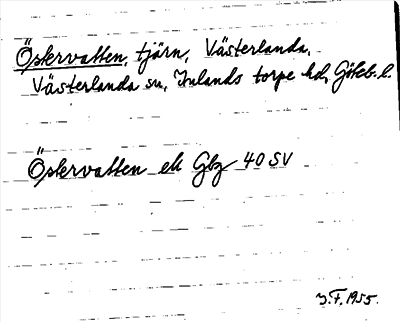 Östervatten, tjärn, Västerlanda,
Västerlanda sn, Inlands torpe hd, Göteb. l.
Östervatten ek Gbg 40 SV
J.F. 1955.